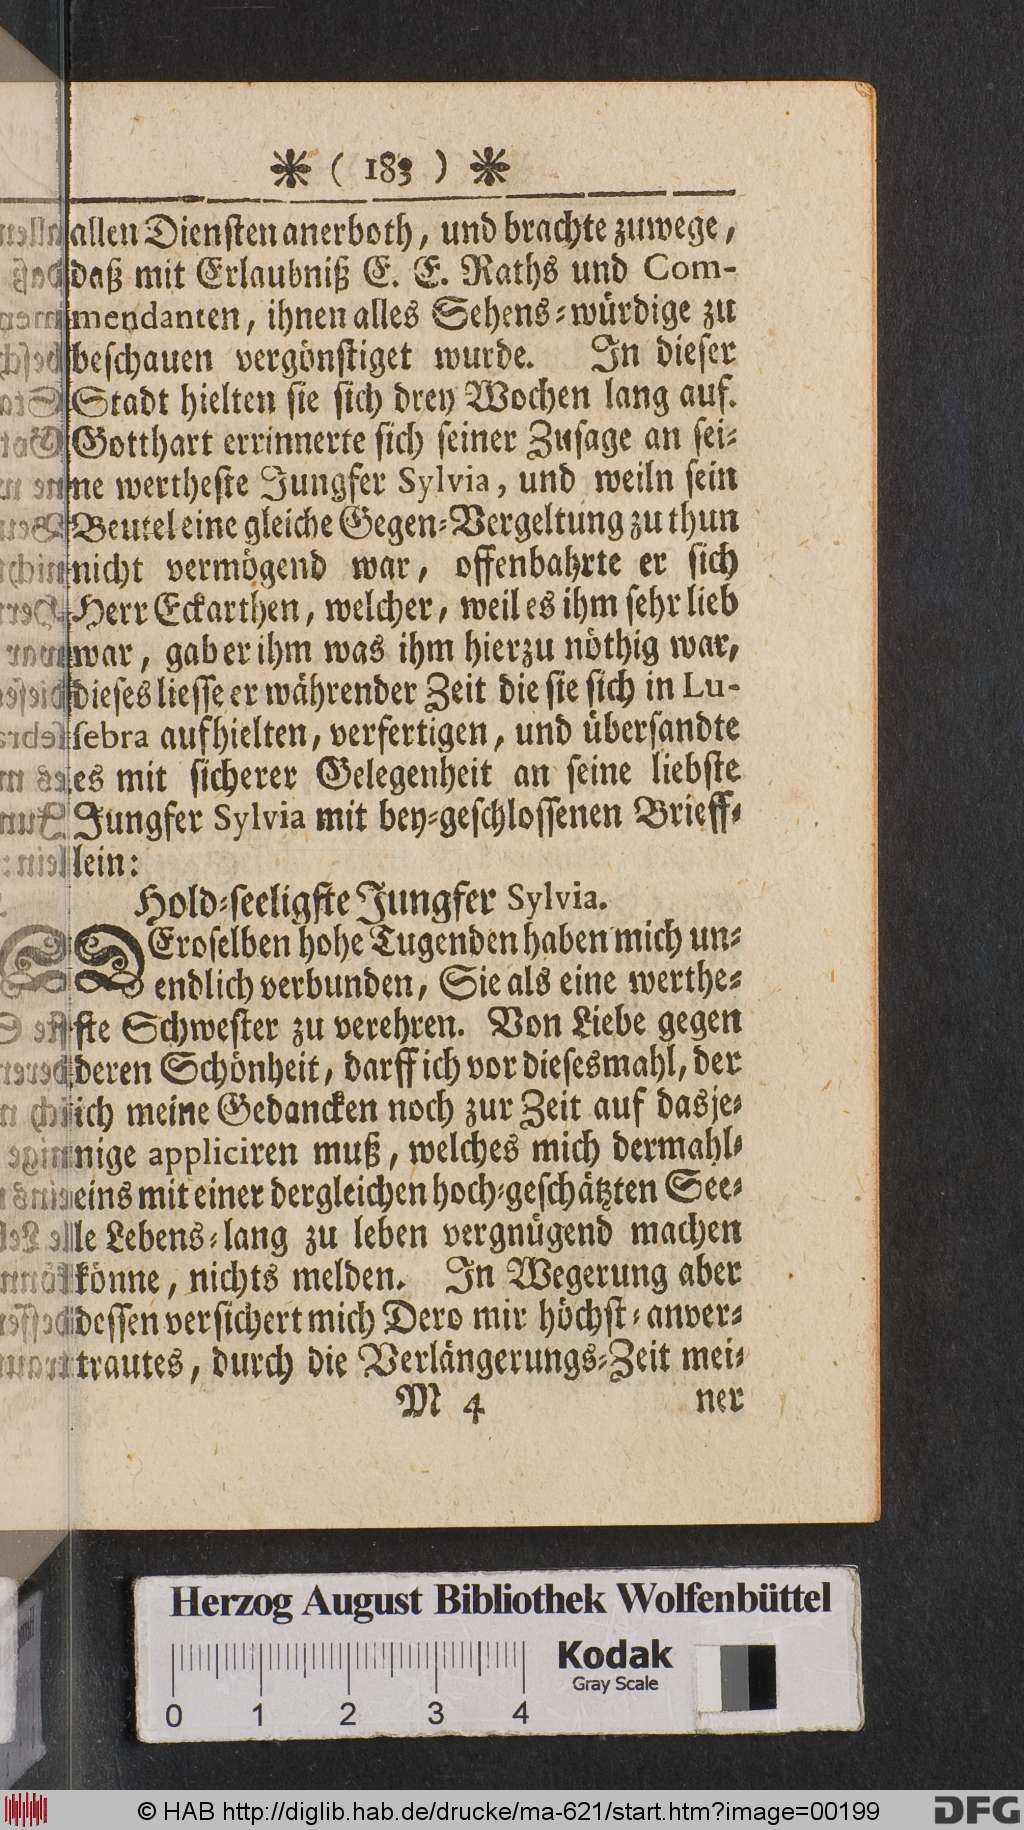 * ( 183 ) *
allen Diensten anerboth, und brachte zuwege,
daß mit Erlaubniß E. E. Raths und Com-
mendanten, ihnen alles Sehens-würdige zu
beschauen vergönstiget wurde. In dieser
Stadt hielten sie sich drey Wochen lang auf.
Gotthart errinnerte sich seiner Zusage an sei-
ne wertheste Jungfer Sylvia, und weiln sein
Beutel eine gleiche Gegen-Vergeltung zu thun
nicht vermögend war, offenbahrte er sich
Herr Eckarthen, welcher, weil es ihm sehr lieb
war, gab er ihm was ihm hierzu nöthig war,
dieses liesse er währender Zeit die sie sich in Lu-
sebra aufhielten, verfertigen, und übersandte
es mit sicherer Gelegenheit an seine liebste
Jungfer Sylvia mit bey-geschlossenen Brieff-
lein:
Hold-seeligste Jungfer Sylvia.
DEroselben hohe Tugenden haben mich un-
endlich verbunden, Sie als eine werthe-
ste Schwester zu verehren. Von Liebe gegen
deren Schönheit, darff ich vor diesesmahl, der
ich meine Gedancken noch zur Zeit auf dasje-
nige appliciren muß, welches mich dermahl-
eins mit einer dergleichen hoch-geschätzten See-
le Lebens-lang zu leben vergnügend machen
könne, nichts melden. In Wegerung aber
dessen versichert mich Dero mir höchst-anver-
trautes, durch die Verlängerungs-Zeit mei-
M 4 ner
Herzog August Bibliothek Wolfenbüttel
Kodak
Gray Scale
0 1 2 3 4
© HAB http://diglib.hab.de/drucke/ma-621/start.htm?image=00199
DFG